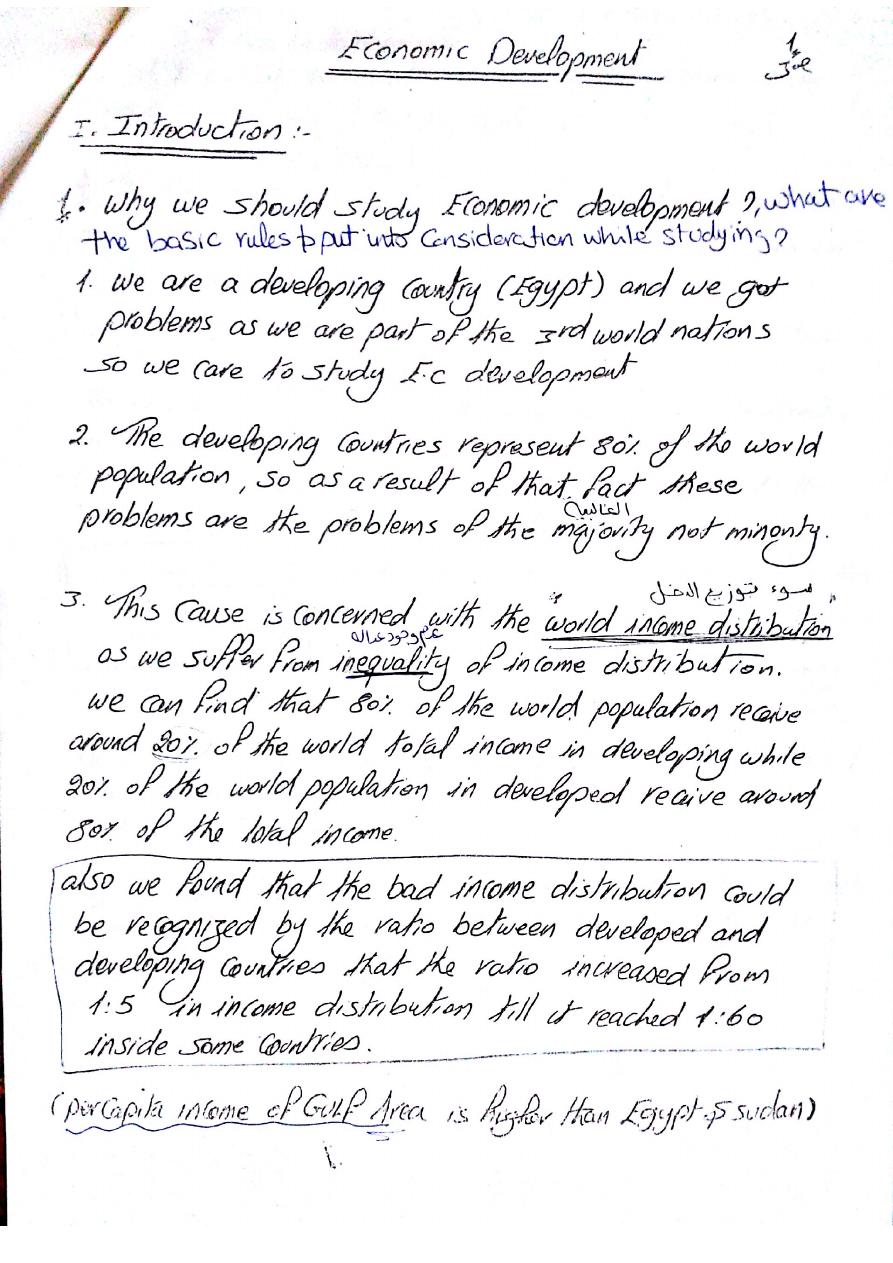 Economic Development
1
I. Introduction :-
1. Why we should study Economic development ?, what are
the basic rules to put into Consideration while studying?
1. we are a developing Country (Egypt) and we got
problems as we are part of the 3rd world nations
so we care to study E.c development
2. The developing Countries represent 80% of the world
population, so as a result of that fact these
الغالبية
problems are the problems of the majority not minority.
سوء توزيع الدخل
3. This Cause is concerned with the "world income distribution"
عدم وجود عدالة
as we suffer from inequality of income distribution.
we can find that 80% of the world population receive
around 20% of the world total income in developing while
20% of the world population in developed receive around
80% of the total income.
also we found that the bad income distribution Could
be recognized by the ratio between developed and
developing Countries that the ratio increased from
1:5 in income distribution till it reached 1:60
inside some Countries.
(per Capita income of Gulf Area is higher than Egypt & sudan)
1.